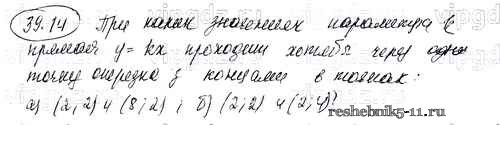 39.14 При каких значениях параметра k
прямая y = kx проходит хотя бы через одну
точку отрезка с концами в точках:
а) (2; 2) и (8; 2) ; б) (2; 2) и (2; 4)?
reshebnik5-11.ru